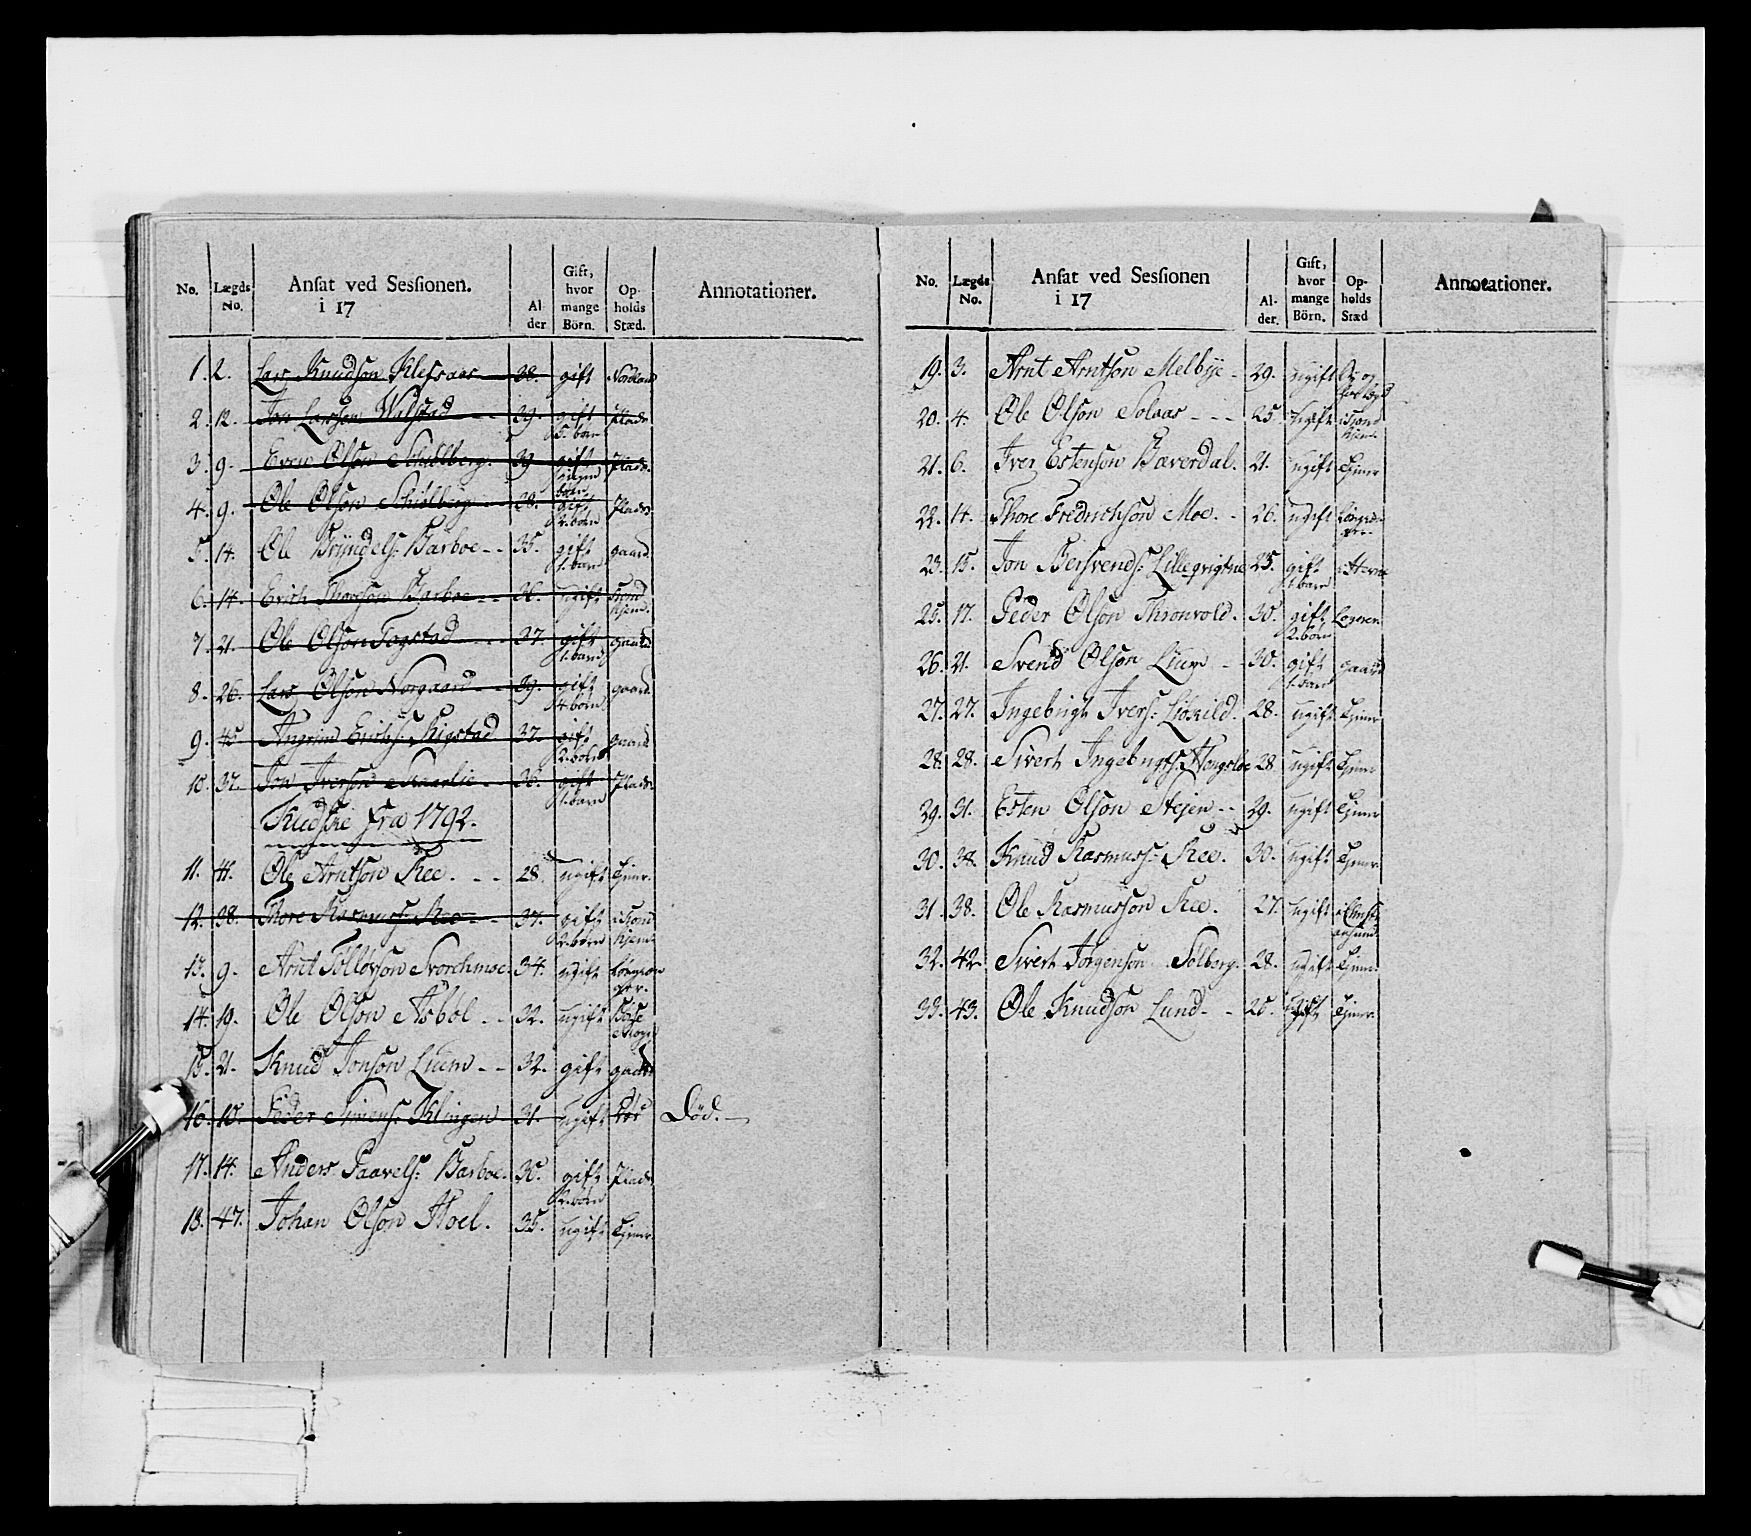 No. Lægds No. Ansat ved Sessionen. i 17 Alder Gift, hvor mange Börn. Opholds Stæd. Annotationer.
1. 2. Lars Knudson Klefsaas 38. gift Nordland
2. 12. Jon Larson Wolstad 39. gift 5. børn Plads
3. 9. Even Olson Schiölberg. 39 gift børn Plads.
4. 9. Ole Olson Schiölberg 38. gift 2. børn Plads.
5. 14. Ole Bryndels: Barboe 35. gift 1. barn gaard
6. 14. Erich Thorson Barboe 36. ugift Trondhjem.
7. 21. Ole Olson Togstad 37. gift 1. barn gaard
8. 26. Lars Olson Norgaard 39. gift 4 børn gaard.
9. 45 Angrim Erichs: Rigstad 37. gift 2. børn gaard
10. 37. Jon Iverson Skaarlie 36. gift 1. barn Plads.
Kudske fra 1792.
11. 4. Ole Arntson Ree. 28. ugift Tjener.
12. 38. Thore Rasmuss: Ree 37. gift 2. børn i Trondhjem
13. 9. Arnt Tolløvson Svorchmoe 34. ugift
14. 19. Ole Olson Aasbøl 32. ugift
15. 21. Knud Jonson Lium 32. gift gaard
16. 10. Peder Simens: Klingen 31. ugift Død.
17. 14. Anders Paavels: Barboe. 30. gift 2. børn Plads
18. 47. Johan Olson Hoel. 35. ugift Tjener.
No. Lægds No. Ansat ved Sessionen i 17 Alder. Gift, hvor mange Börn. Opholds Stæd Annotationer.
19. 3. Arnt Arntson Melbye 29. ugift
20. 4. Ole Olson Solaas 25. ugift i Trondhjem.
21. 6. Iver Estenson Bæverdal. 21. ugift Tjener
22. 14. Thore Fredrichson Moe. 26. ugift
23. 15. Jon Bersvends: Lillegrigtne 25. gift 1. barn
25. 17. Peder Olson Thronvold. 30. gift 2. børn
26. 21. Svend Olson Lium 30. gift 1. barn gaard
27. 27. Ingebrigt Ivers: Lioskild. 28. ugift Tjener
28. 28. Sivert Ingebrigts: Hougsloe 28 ugift Tjener
29. 31. Esten Olson Stejen 29. ugift Tjener
30. 38. Knud Rasmuss: Ree. 30. ugift Tjener.
31. 38. Ole Rasmusson Ree. 27. ugift
32. 42. Sivert Jørgenson Solberg. 28. ugift Tjener.
33. 43. Ole Knudson Lund 25. gift Tjener.